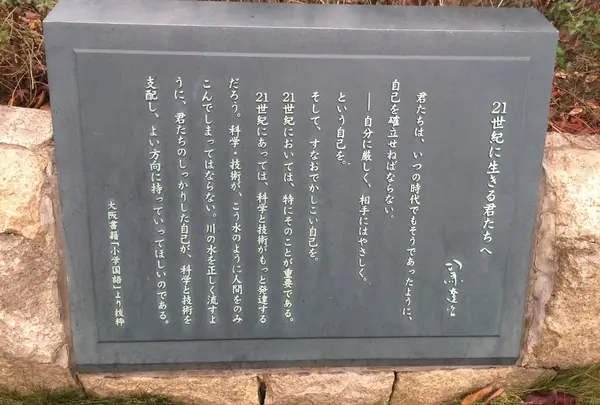 21世紀に生きる君たちへ
司馬遼太郎
君たちは、いつの時代でもそうであったように、
自己を確立せねばならない。
――自分に厳しく、相手にはやさしく。
という自己を。
そして、すなおでかしこい自己を。
21世紀においては、特にそのことが重要である。
21世紀にあっては、科学と技術がもっと発達する
だろう。科学・技術が、こう水のように人間をのみ
こんでしまってはならない。川の水を正しく流すよ
うに、君たちのしっかりした自己が、科学と技術を
支配し、よい方向に持っていってほしいのである。
大阪書籍『小学国語』より抜粋